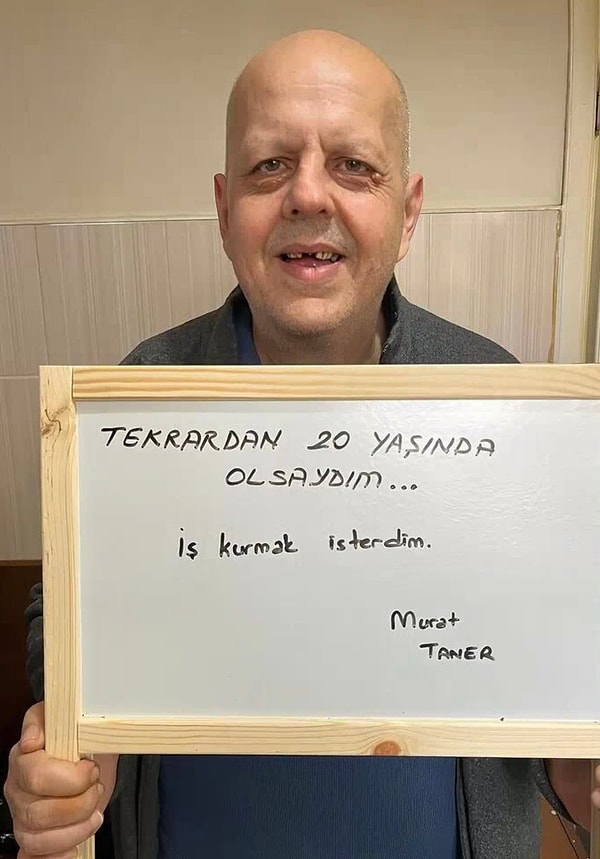 TEKRARDAN 20 YAŞINDA
OLSAYDIM...
iş kurmak isterdim.
Murat
TANER